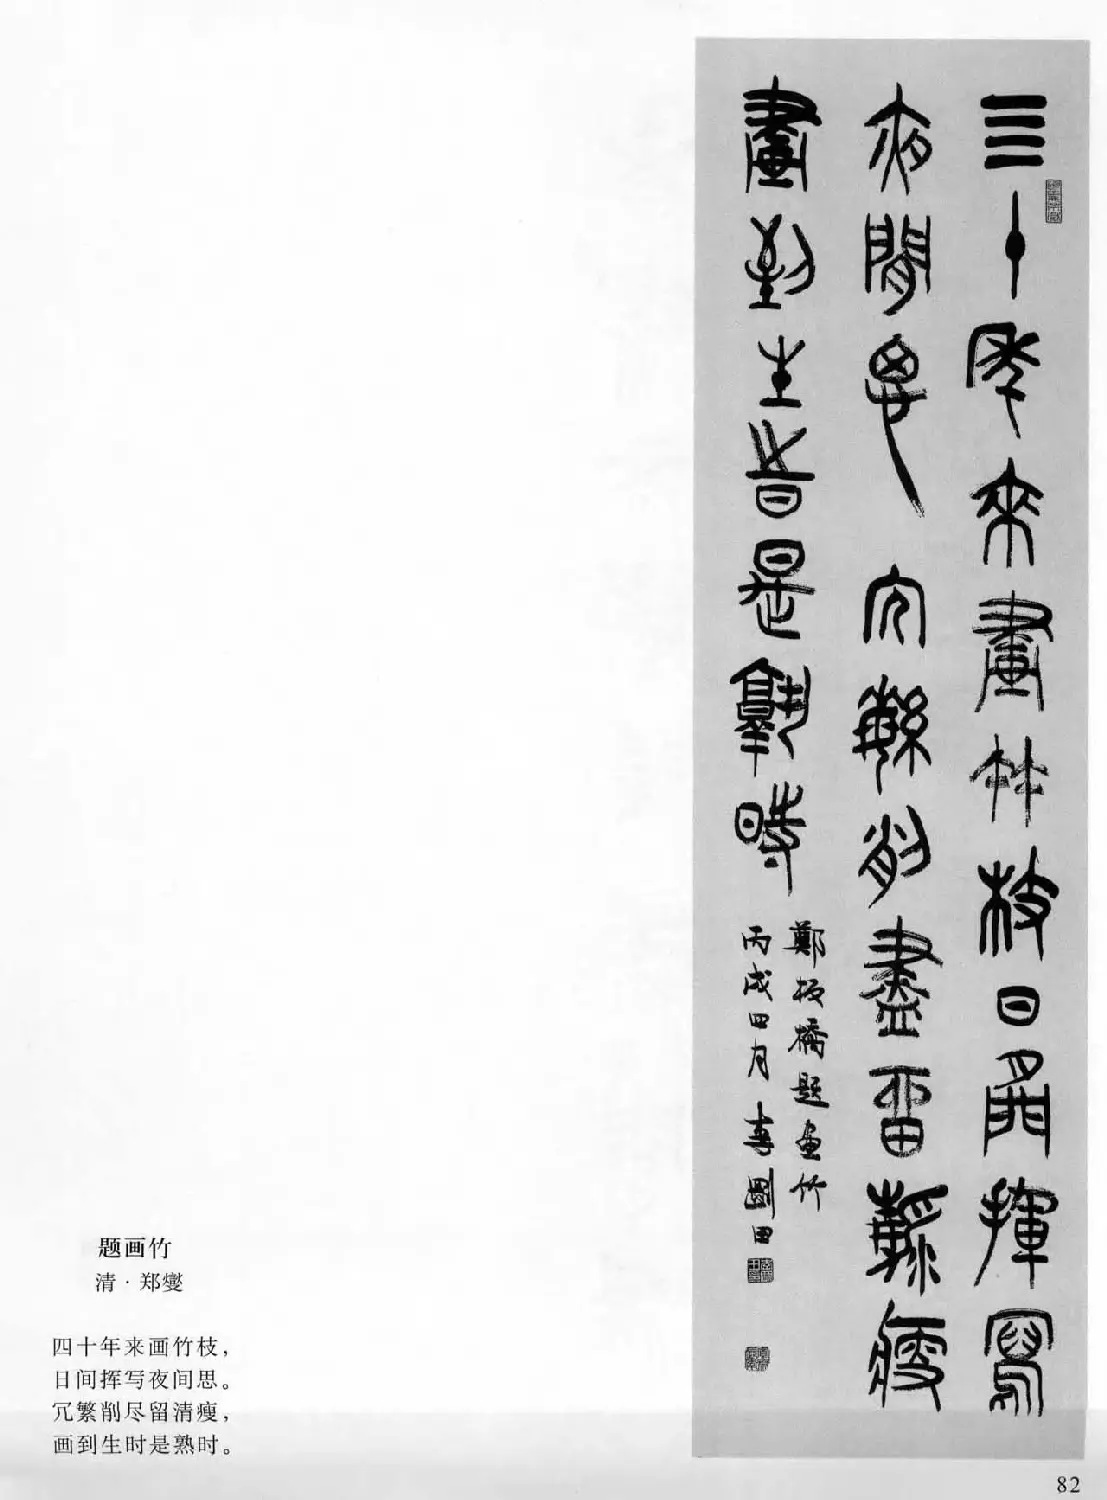 亖十年來畫竹枝日間揮寫
夜間思冗繁削盡留清瘦
畫到生時是熟時
鄭板橋題畫竹
丙戌四月李剛田
题画竹
清·郑燮
四十年来画竹枝，
日间挥写夜间思。
冗繁削尽留清瘦，
画到生时是熟时。
82